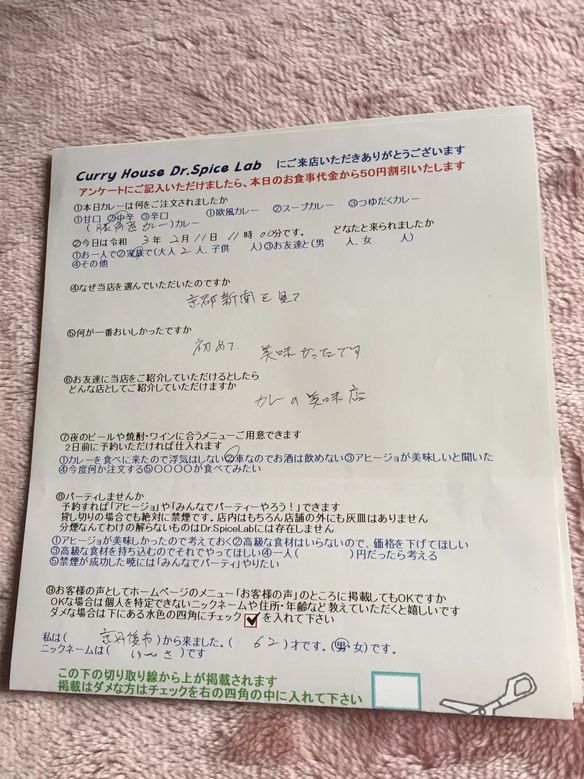 Curry House Dr.Spice Lab にご来店いただきありがとうございます
アンケートにご記入いただけましたら、本日のお食事代金から50円割引いたします
①本日カレーは何をご注文されましたか
①甘口 ②中辛 ③辛口 ①欧風カレー ②スープカレー ③つゆだくカレー
(豚角煮カレー)カレー
②今日は令和 3年 2月11日 11時00分です。 どなたと来られましたか
①お一人で②家族で(大人 2人、子供 人)③お友達と(男 人、女 人)
④その他
④なぜ当店を選んでいただいたのですか
京都新聞を見て
⑤何が一番おいしかったですか
初めて 美味かったです
⑥お友達に当店をご紹介していただけるとしたら
どんな店としてご紹介していただけますか
カレーの美味店
⑦夜のビールや焼酎・ワインに合うメニューご用意できます
2日前に予約いただければ仕入れます
①カレーを食べに来たので浮気はしない②車なのでお酒は飲めない③アヒージョが美味しいと聞いた
④今度何か注文する⑤〇〇〇〇が食べてみたい
⑧パーティしませんか
予約すれば「アヒージョ」や「みんなでパーティーやろう!」できます
貸し切りの場合でも絶対に禁煙です。店内はもちろん店舗の外にも灰皿はありません
分煙なんてわけの解らないものはDr.SpiceLabには存在しません
①アヒージョが美味しかったので考えておく②高級な食材はいらないので、価格を下げてほしい
③高級な食材を持ち込むのでそれでやってほしい④一人( )円だったら考える
⑤禁煙が成功した暁には「みんなでパーティ」やりたい
⑨お客様の声としてホームページのメニュー「お客様の声」のところに掲載してもOKですか
OKな場合は個人を特定できないニックネームや住所・年齢など教えていただくと嬉しいです
ダメな場合は下にある水色の四角にチェック を入れて下さい
私は( 京丹後市 )から来ました。( 62 )才です。(男・女)です。
ニックネームは( い〜さ )です
この下の切り取り線から上が掲載されます
掲載はダメな方はチェックを右の四角の中に入れて下さい